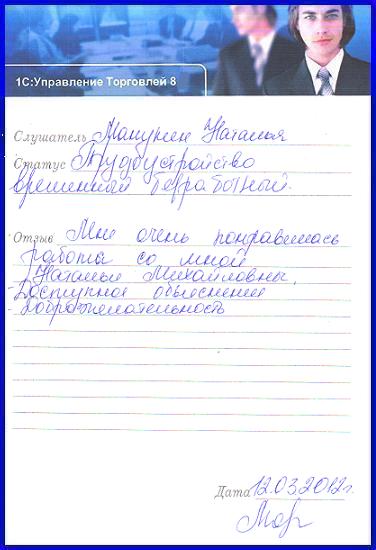 1С:Управление Торговлей 8
Слушатель Макунен Наталья
Статус Трудоустройство
временный безработный.
Отзыв Мне очень понравилась
работа со мной
Натальи Михайловны,
- Доступное объяснения
- Доброжелательность
Дата 12.03.2012г.